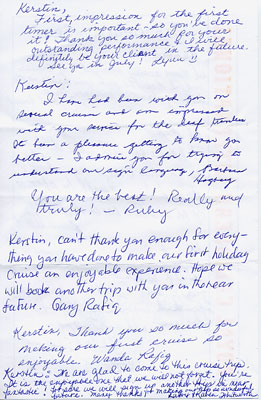 Kerstin,
First impression for the first
timer is important so you've done
it! Thank you so much for your
outstanding performance & I will
definitely be your client in the future.
See ya in July!
Kerstin:
I have had been with you on
several cruises and am impressed
with your service for the deaf
It has a pleasure getting to know you
better - I admire you for trying to
understand our sign language, Barbara
You are the best! Really and
truly! - Ruby
Kerstin, can't thank you enough for every-
thing you have done to make our first holiday
Cruise an enjoyable experience. Hope we
will book another trip with you in the near
future. Gary Rafig
Kerstin, Thank you so much for
making our first cruise so
enjoyable. Wanda Rafig
Kerstin: We are glad to come to this cruise trip.
It is the enjoyable one that we will not forget. You're
fantastic! I'm sure we will sign up another trip in near
future. Many thanks for making our trip so wonderful